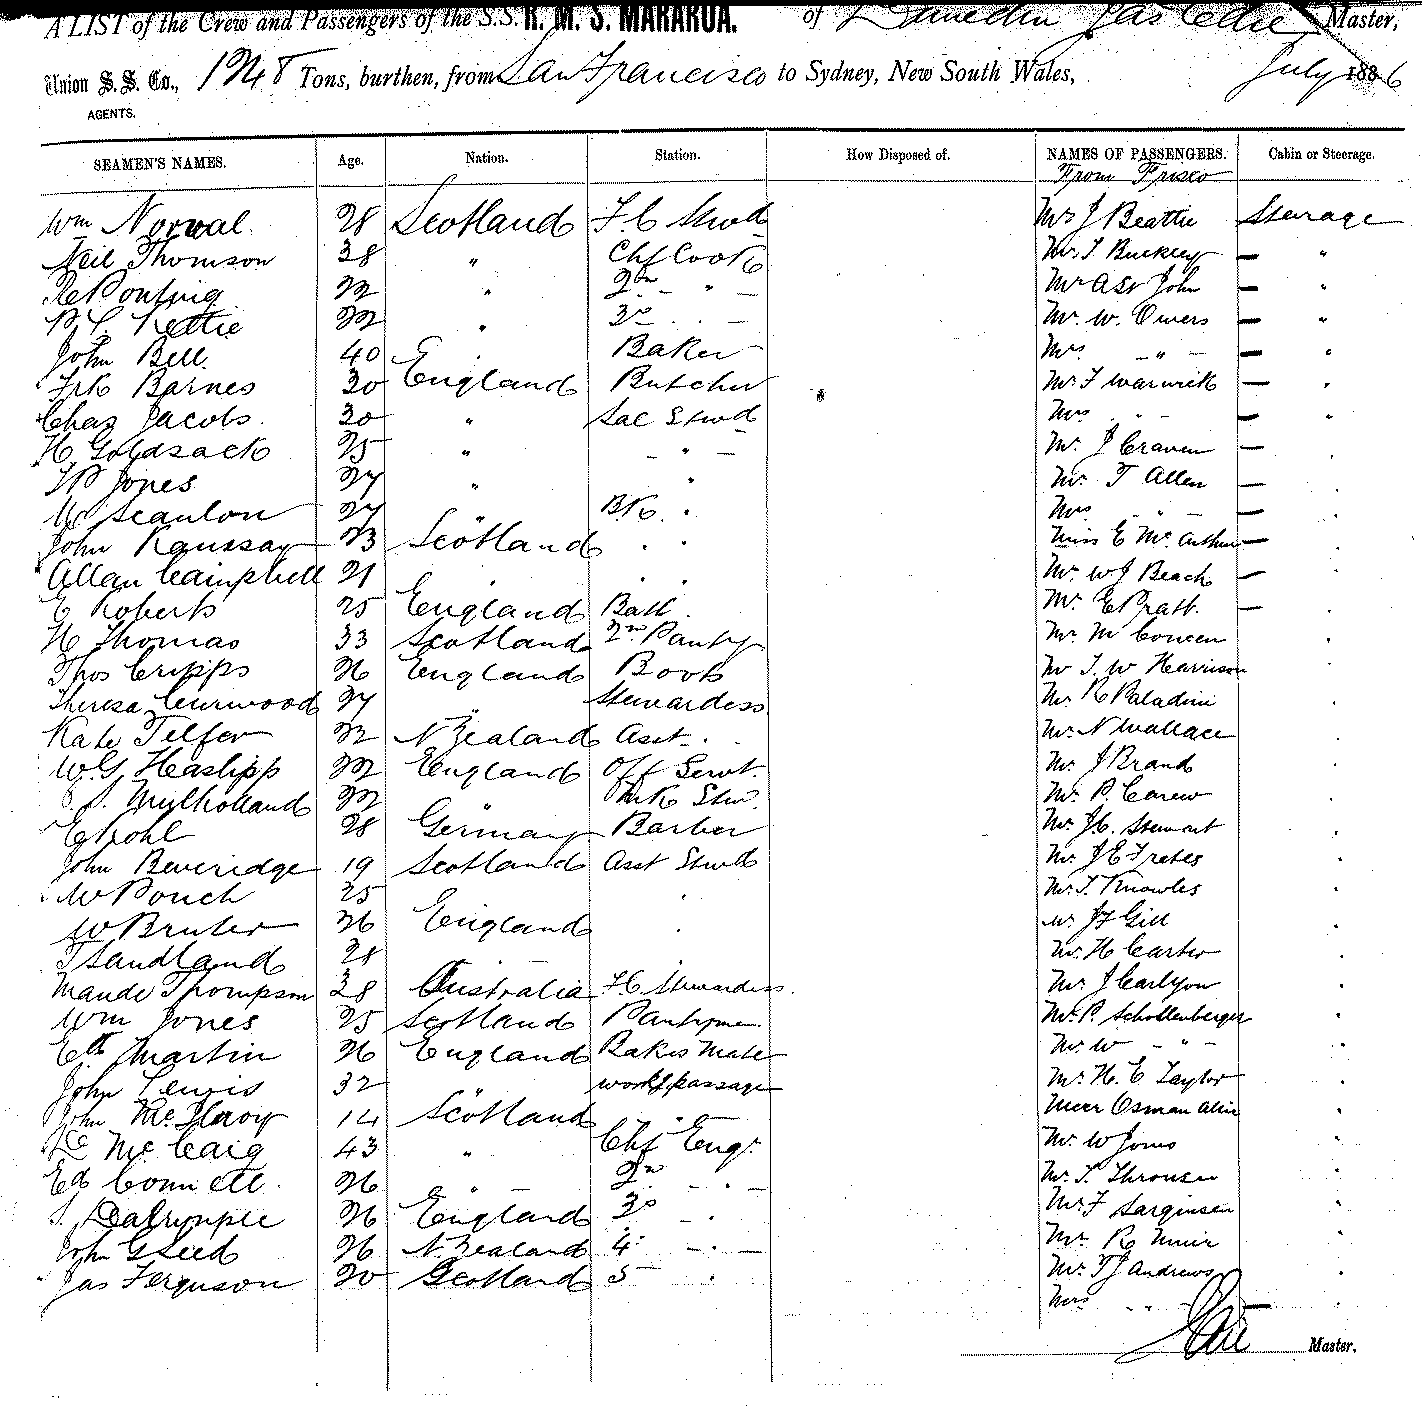 A LIST of the Crew and Passengers of the S.S. R. M. S. MARAROA. of Dunedin Jas Edie Master,
Union S. S. Co., Tons, burthen, from San Francisco to Sydney, New South Wales, July 1886
AGENTS.
SEAMEN'S NAMES. Age. Nation. Station. How Disposed of. NAMES OF PASSENGERS. Cabin or Steerage.
From Frisco
Wm Norval 28 Scotland F. C. Stwd Mr J Beattie Steerage
Neil Thomson 38 " Chf Cook Mr. T Buckley — "
R Ponting 22 " 2nd " — Mr A St John — "
Kettie 22 " 3rd . — Mr. W. Owers — "
John Bell. 40 Baker Mrs — " — — "
Frk Barnes 30 England Butcher Mr. F Warwick — "
Chas Jacobs. 30 " Sal Stwd Mrs " — — "
H Goldsack 25 " — " — Mr. J Craven —
Jones 27 " " Mr. T Allen —
Scanlon 27 " B.K. " Mrs " —
John Ramsay 23 Scotland " " Miss E McArthur —
Allan Campbell 21 " " Mr. W J Beach —
E Roberts 25 England Bath. Mr. E Pratt. —
H Thomas 33 Scotland 2nd Pantry Mr. M
Thos Cripps 26 England Boots Mr J. W Harrison
Theresa Curwood 27 " Stewardess Mr. R Paladini
Kate Telfer 22 N Zealand Asst. Mr. N Wallace
W.G. Heslipp 22 England Off Servt. Mr. J Brand
Mulholland 22 " Stwd. Mr. P. Carew
E Pohl 28 Germany Barber Mr. J.C. Stewart
John Beveridge 19 Scotland Asst Stwd Mr. J E
W Pouch 25 " Mr. T. Knowles
W 26 England " Mr. J F Gill
T Sandland 28 Mr. H Carter
Maude Thompson 38 Australia F C Stewardess. Mr. J Carlyon
Wm Jones 25 Scotland Pantryman Mr. P. Schollenberger
Martin 26 England Bakers Mate Mr. W — " —
John Lewis 32 " workg passage Mr. H. E Taylor
John McIlroy 14 Scotland " Meer Osman
McCaig 43 " Chf Engr. Mr. W Jones
Ed Connell. 26 " 2nd — . — Mr. T.
Dalrymple 26 England 3rd — . Mr. F
John G Leed 26 N. Zealand 4 — . — Mr. R Muir
Jas Ferguson 20 Scotland 5 — . Mr. T J Andrews
Mrs " " —
Master.